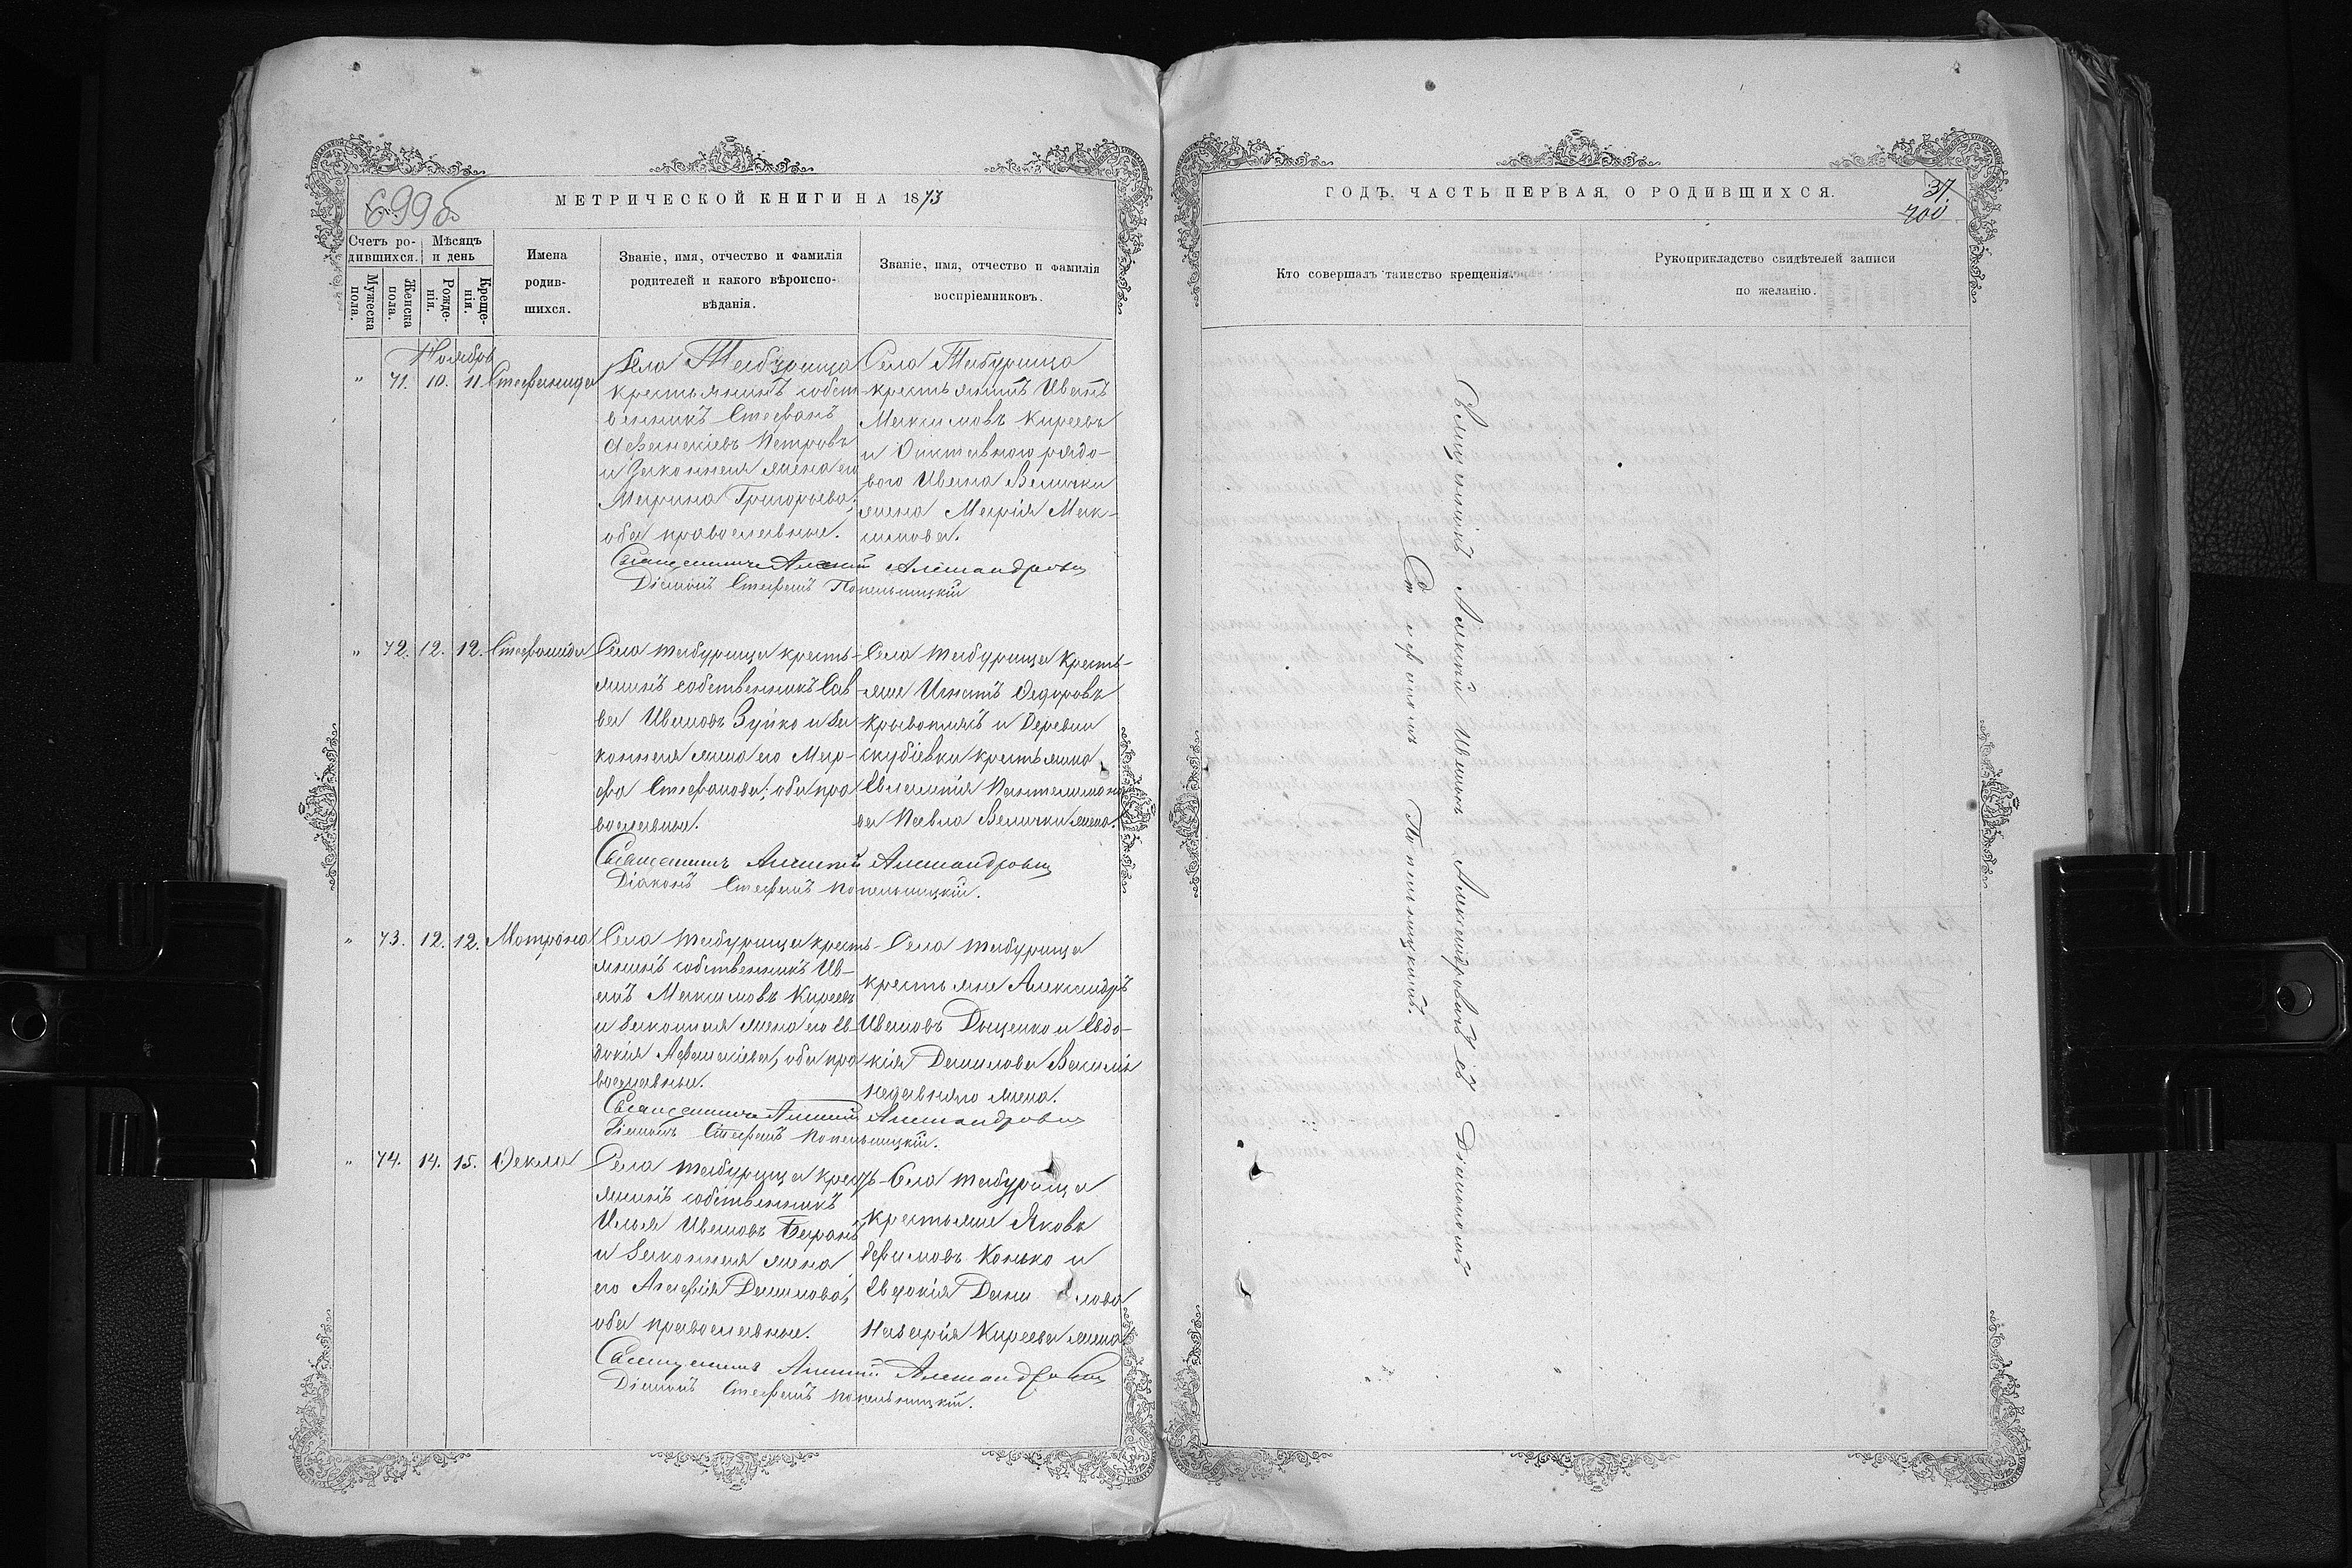 699б
МЕТРИЧЕСКОЙ КНИГИ НА 1873
Счетъ ро-
дившихся.
Мѣсяцъ
и день
Мужеска
пола.
Женска
пола.
Рожде-
нія.
Креще-
нія.
Имена
родив-
шихся.
Званіе, имя, отчество и фамилія
родителей и какого вѣроиспо-
вѣданія.
Званіе, имя, отчество и фамилія
воспріемниковъ.
Ноябрь
" 71. 10. 11. Стефанида
Села Табурища
крестьянинъ собст-
венникъ Стефанъ
Афанасіевъ Петровъ
и Законная жена его
Марина Григорьева;
оба православные.
Села Табурища
крестьянинъ Иванъ
Максимовъ Киреевъ
и Отставного рядо-
вого Ивана Велички
жена Марія Мак-
симова.
Священникъ Алексій Александровичъ
Діаконъ Стефанъ Попельницкій
" 72. 12. 12. Стефанида
Села Табурища кресть-
янинъ собственникъ Сав-
ва Ивановъ Зуйко и За-
конная жена его Мар-
фа Стефанова; оба пра
вославные.
Села Табурища Кресть-
яне Игнатъ Федоровъ
Крывошия и Деревни
Скубіевки крестьянка
Евгенія Пантелимоно
ва Павла Велички жена.
Священникъ Алексій Александровичъ
Діаконъ Стефанъ Попельницкій.
" 73. 12. 12. Матрона
Села Табурища кресть-
янинъ собственникъ Ив-
анъ Максимовъ Киреевъ
и Законная жена его Ев-
докія Афанасіева, оба пра
вославные.
Села Табурища
крестьяне Александръ
Ивановъ Доценко и Евдо-
кія Данилова Василія
жена.
Священникъ Алексій Александровичъ
Діаконъ Стефанъ Попельницкій.
" 74. 14. 15. Ѳекла
Села Табурища кресть-
янинъ собственникъ
Илья Ивановъ Баранъ
и Законная жена
его Агафія Данилова,
оба православные.
Села Табурища
Крестьяне Яковъ
Ефимовъ Конько и
Евдокія Данилова
Назарія Киреева жена
Священникъ Алексій Александровичъ
Діаконъ Стефанъ Попельницкій.
ГОДЪ, ЧАСТЬ ПЕРВАЯ, О РОДИВШИХСЯ.
37.
700
Кто совершалъ таинство крещенія.
Рукоприкладство свидѣтелей записи
по желанію.
Священникъ Алексій Ивановъ Александровичъ съ Діакономъ
Стефаномъ Попельницкимъ.